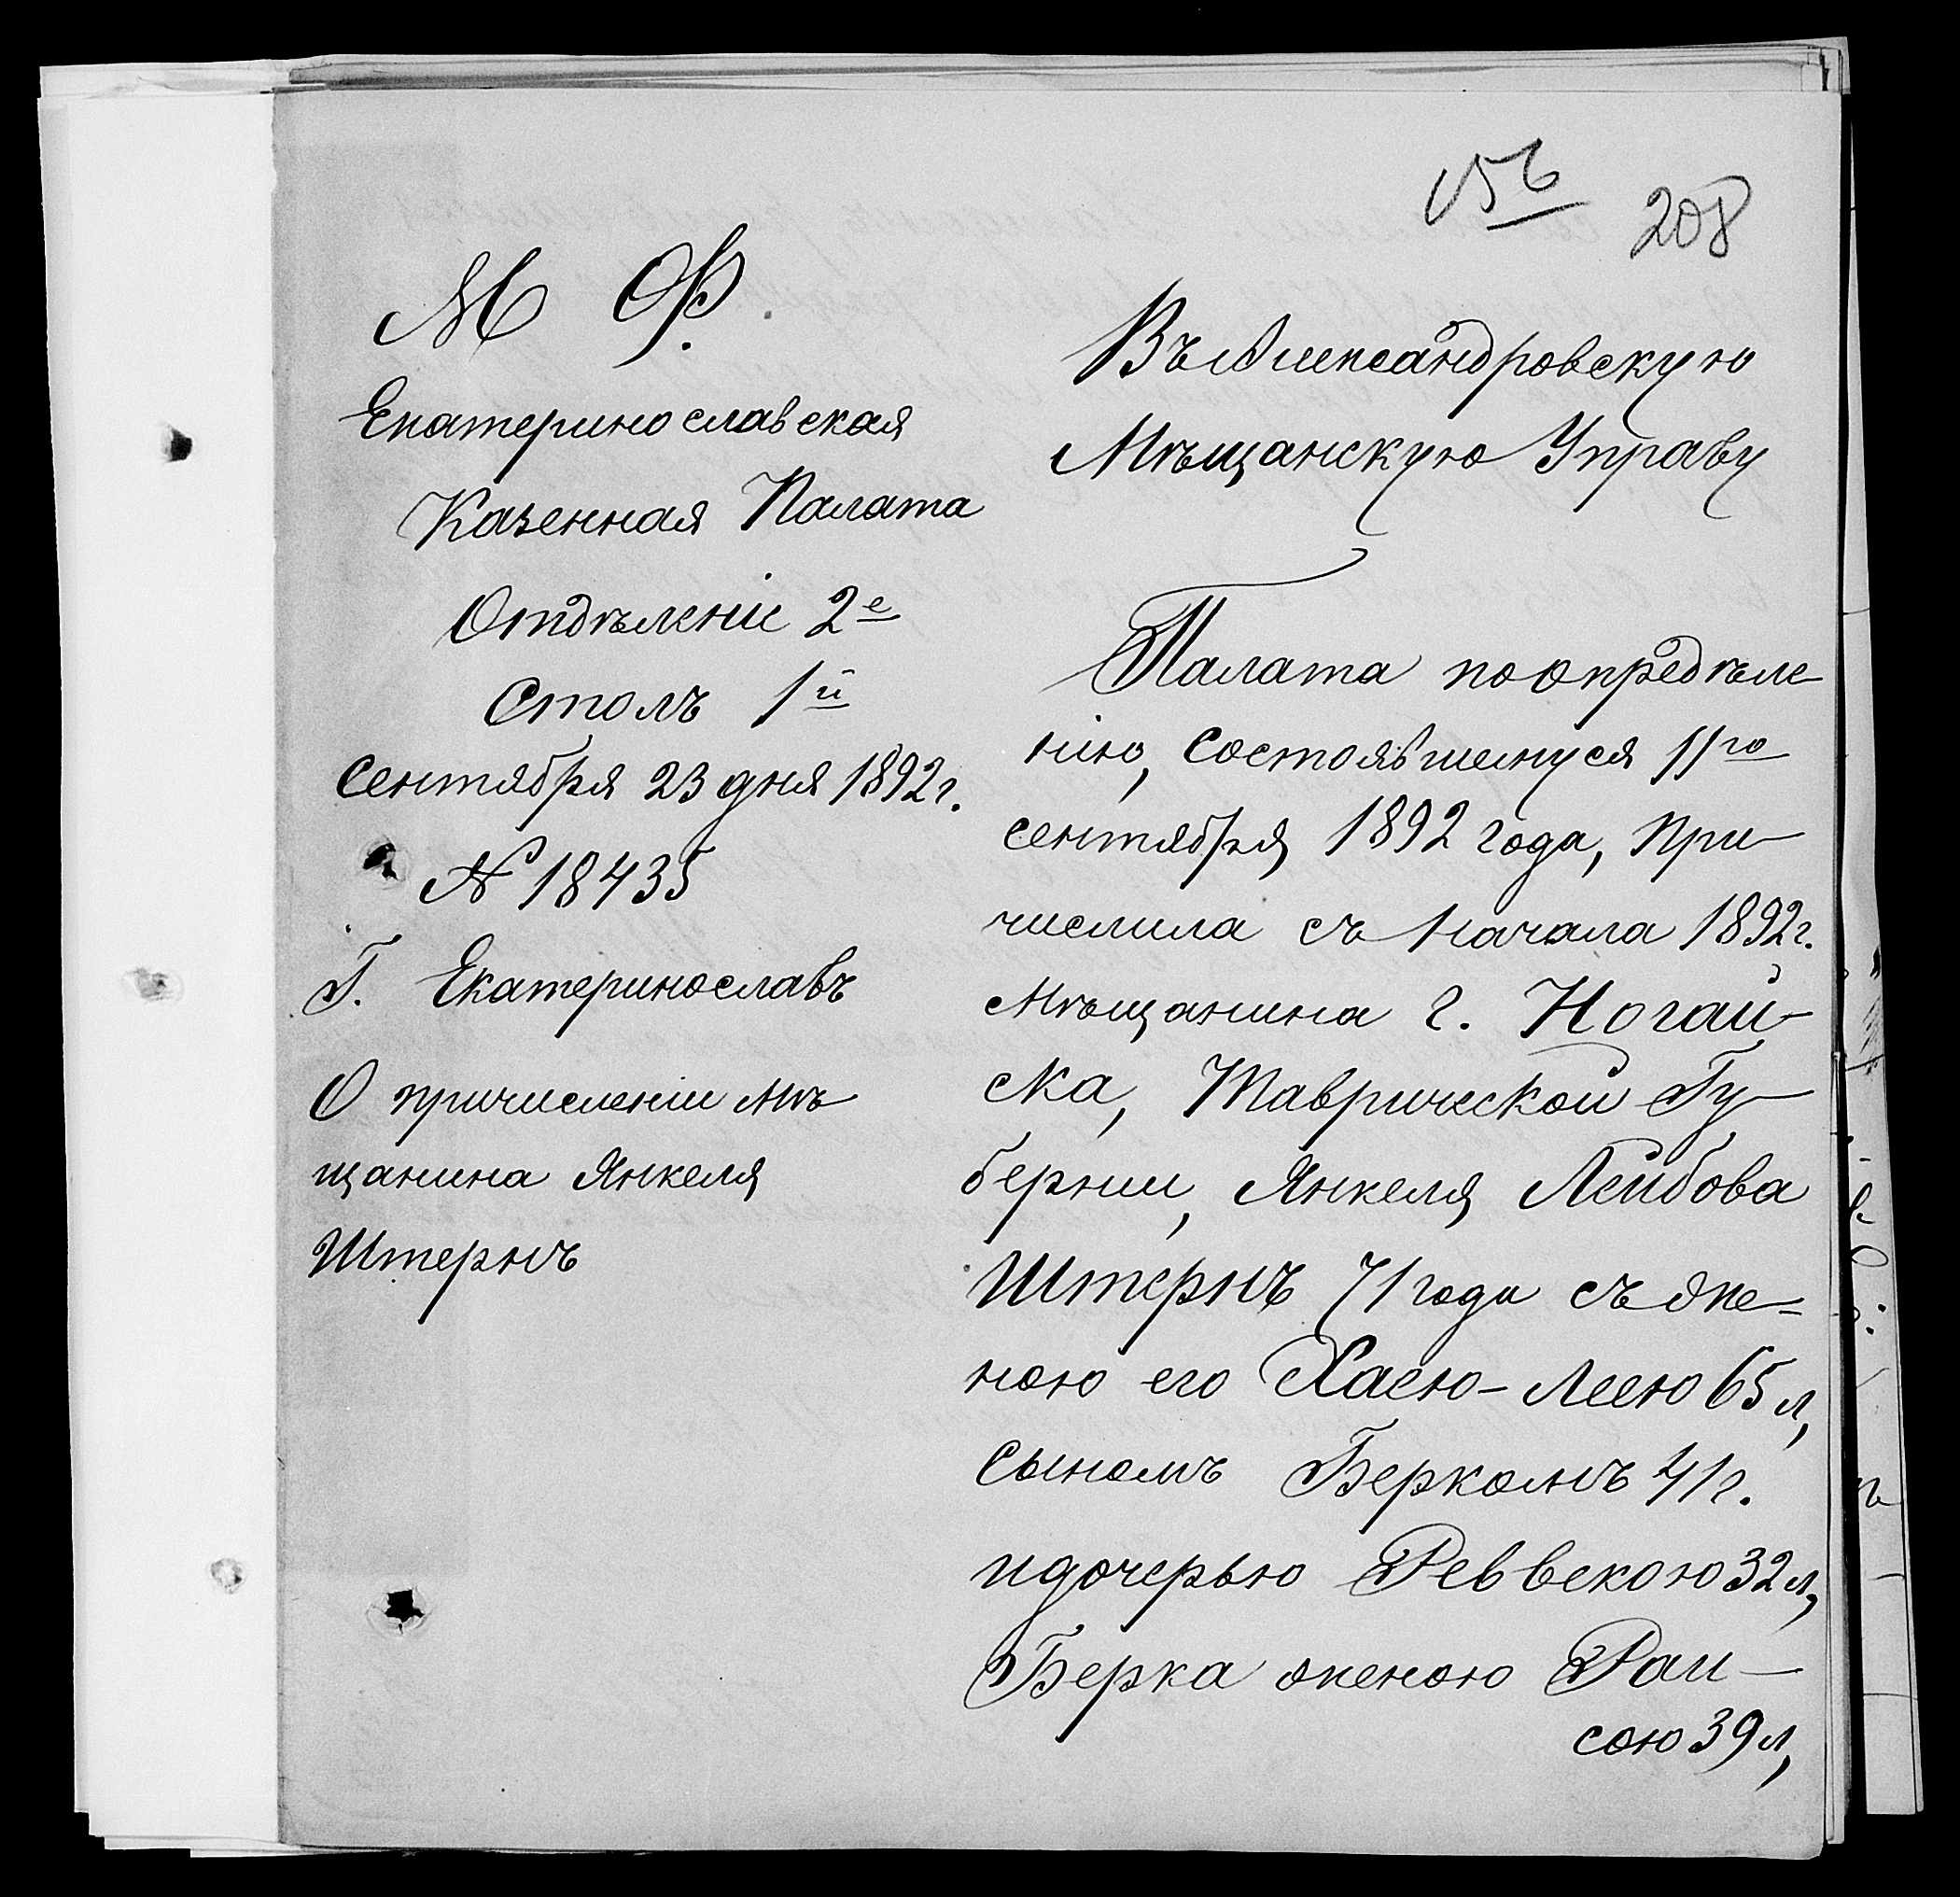 156
208
М Ф.
Екатеринославская
Казенная Палата
Отдѣленіе 2е
Столъ 1й
Сентября 23 дня 1892г.
№ 18435
Г. Екатеринославъ
О причисленіи мѣ
щанина Янкеля
Штернъ
Въ Александровскую
Мѣщанскую Управу
Палата по опредѣле
нію, состоявшемуся 11го
сентября 1892 года, при-
числила съ начала 1892г.
мѣщанина г. Ногай-
ска, Таврической Гу-
берніи, Янкеля Лейбова
Штернъ 71 года съ же-
ною его Хаею-Леею 65 л,
сыномъ Беркомъ 41 г.
и дочерью Реввекою 32 л,
Берка женою Раи-
сою 39 л,